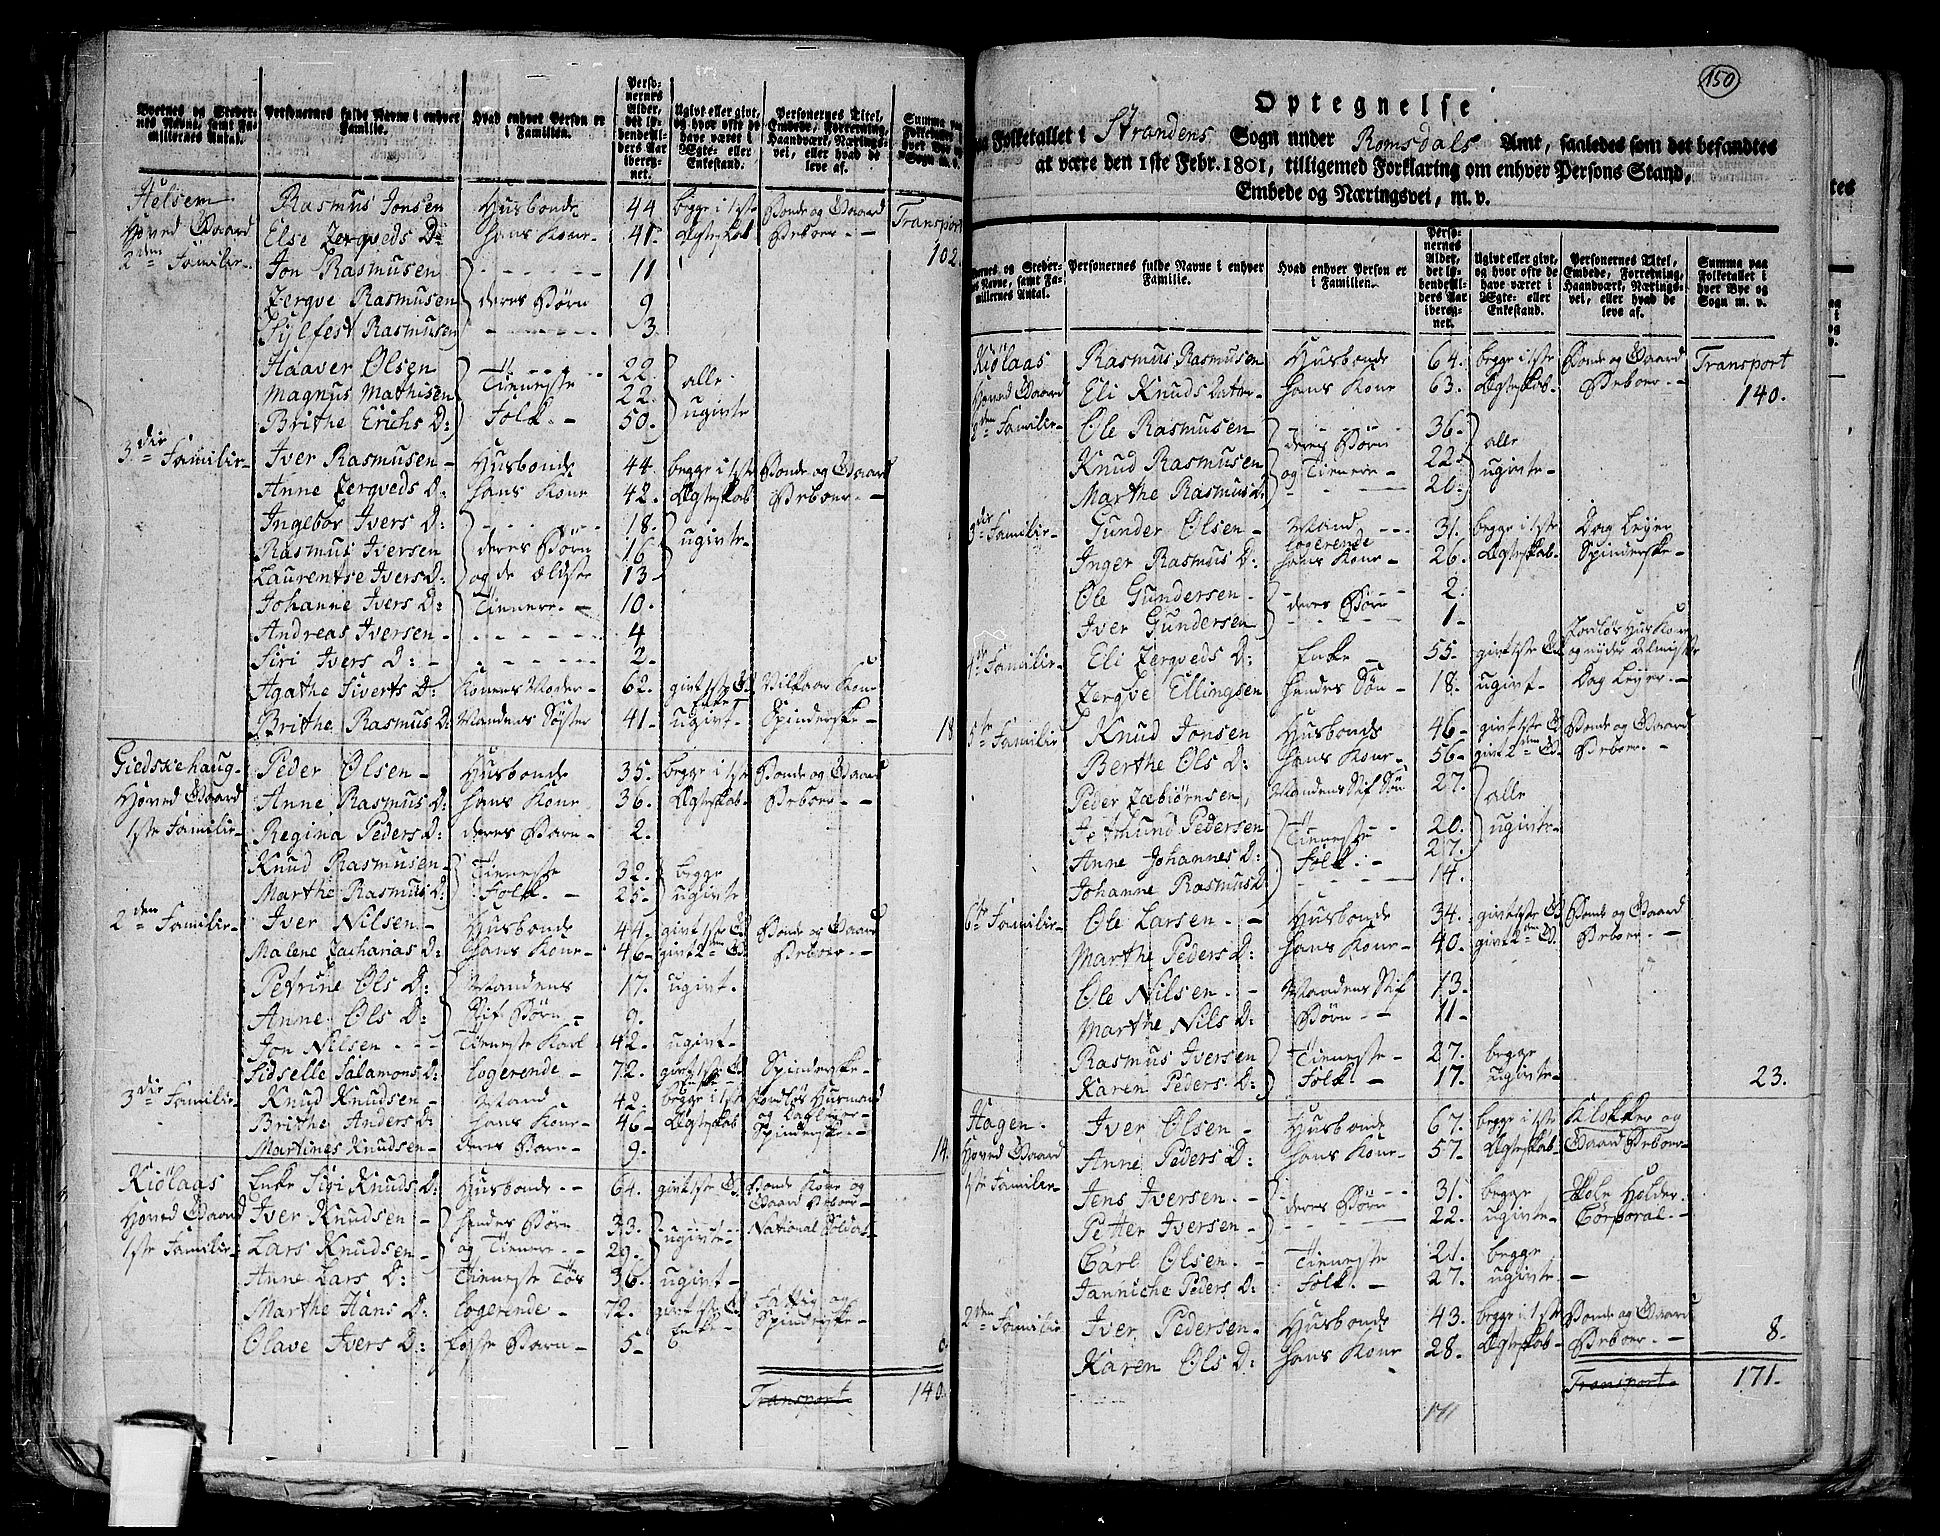 Byernes og Stedernes Navne, samt Familiernes Antal. | Personernes fulde Navne i enhver Familie. | Hvad enhver Person er i Familien. | Personernes Alder, det løbendeAlders Aar iberegnet. | Ugivt eller givt, og hvor ofte de have været i Ægte- eller Enkestand. | Personernes Titel, Embede, Forretning, Haandværk, Næringsvei, eller hvad de leve af. | Summa paa Folketallet i hver Bye og Sogn m. v.
Helsem Rasmus Jonsen Husbonde 44 begge i 1ste Bonde og Gaard Transport
Hoved Gaard Else Zergveds D: hans Kone - 41 - Ægteskab Beboer - 102.
2den Familie - Jon Rasmusen 11
Zergve Rasmusen deres Børn 9
Sylfest Rasmusen 3.
Haaver Olsen 22
Magnus Mathisen Tieneste 22. alle
Brithe Erichs D: Folk - 50. ugivte
3die Familie - Iver Rasmusen - Husbonde 44. begge i 1ste Bonde og Gaard
Anne Zergveds D: hans Kone 42. Ægteskab Beboer -
Ingebor Ivers D: 18.
Rasmus Iversen deres Børn 16 ugivte -
Laurentse Ivers D: og de ældste 13
Johanne Ivers D: Tienere - 10.
Andreas Iversen - 4
Siri Ivers D: - 2.
Agathe Siverts D: Konens Moder - 62. givt 1ste G. Enke Vilkaar Kone
Brithe Rasmus D: Mandens Søster 41. ugivt - Spinderske - 18
Giedskehaug - Peder Olsen - Husbonde 35. begge i 1ste Bonde og Gaard
Hoved Gaard Anne Rasmus D: hans Kone - 36. Ægteskab - Beboer -
1ste Familie - Regina Peders D: deres Barn - 2.
Knud Rasmusen - Tieneste 32. begge
Marthe Rasmus D: Folk - 25. ugivte
2den Familie - Iver Nilsen - Husbonde 44. givt 1ste G. Bonde og Gaard
Malene Zacharias D: hans Kone - 46 - givt 2den G. Beboer -
Petrine Ols D: Mandens 17. ugivt -
Anne Ols D: Stif Børn - 9.
Jon Nilsen - Tieneste Karl 42. ugivt -
Sidselle Salamons D: Logerende - 72. givt 1ste G. Enke Spinderske -
3die Familie - Knud Knudsen - Mand - 42. begge i 1ste Jordløs Husmand
Brithe Anders D: hans Kone - 46 - Ægteskab og Dagleyer
Martines Knudsen - deres Barn - 9. Spinderske - 14.
Kiølaas Enke Siri Knuds D: Husbonde - 64. givt 1ste G. Bonde Kone og
Hoved Gaard Iver Knudsen - hendes Børn 33. Gaard Beboer -
1ste Familie - Lars Knudsen - og Tienere - 29. ugivte - National Soldat
Anne Lars D: Tieneste Tøs 36. ugivt -
Marthe Hans D: Logerende - 72. givt 1ste G. Fattig og
Olave Ivers D: Løse Barn - 5 - Enke - Spinderske -
Transport 140.
150
Optegnelse
paa Folketallet i Strandens Sogn under Romsdals Amt, saaledes som det befandtes
at være den 1ste Febr. 1801, tilligemed Forklaring om enhver Persons Stand,
Embede og Næringsvei, m. v.
Byernes og Stedernes Navne, samt Familiernes Antal. | Personernes fulde Navne i enhver Familie. | Hvad enhver Person er i Familien. | Personernes Alder, det løbendeAlders Aar iberegnet. | Ugivt eller givt, og hvor ofte de have været i Ægte- eller Enkestand. | Personernes Titel, Embede, Forretning, Haandværk, Næringsvei, eller hvad de leve af. | Summa paa Folketallet i hver Bye og Sogn m. v.
Kiølaas Rasmus Rasmusen Husbonde 64. begge i 1ste Bonde og Gaard Transport
Hoved Gaard Eli Knuds Datter - hans Kone 63. Ægteskab - Beboer - 140.
2den Familie - Ole Rasmusen - 36.
Knud Rasmusen deres Børn 22. alle
Marthe Rasmus D: og Tienere - 20. ugivte -
3die Familie - Gunder Olsen - Mand Logerende 31. begge i 1ste Dag Leyer
Inger Rasmus D: hans Kone - 26. Ægteskab - Spinderske -
Ole Gundersen - 2.
Iver Gundersen deres Børn 1.
4de Familie - Eli Zergveds D: Enke - 55. givt 1ste G. Jordløs HusKone og nyder Almisse
Zergve Ellingsen hendes Søn - 18. ugivt - Dag Leyer -
5te Familie Knud Jonsen Husbonde 46 - givt 1ste G. Bonde og Gaard
Berthe Ols D: hans Kone - 56 - givt 2den G. Beboer -
Peder Zæbiørnsen, Mandens Stif Søn 27. alle
Pedersen Tieneste 20. ugivte -
Anne Johannes D: Folk - 27.
Johanne Rasmus D: 14.
6te Familie - Ole Larsen - Husbonde 34. givt 1ste G. Bonde og Gaard
Marthe Peders D: hans Kone - 40. givt 2den G. Beboer -
Ole Nilsen - Mandens Stif 13.
Marthe Nils D: Børn - 11 -
Rasmus Iversen Tieneste - 27. begge
Karen Peders D: Folk - 17. ugivte - 23.
Hagen - Iver Olsen - Husbonde 67. begge i 1ste Klokker og
Hoved Gaard Anne Peders D: hans Kone - 57. Ægteskab - Gaard Beboer -
1ste Familie - Jens Iversen - deres Børn 31. begge Skole Holder.
Petter Iversen - 22. ugivte - Corporal -
Carl Olsen - Tieneste 21. begge
Janniche Peders D: Folk - 27. ugivte -
2den Familie Iver Pedersen - Husbonde 43. begge i 1ste Bonde og Gaard
Karen Ols D: hans Kone 28. Ægteskab - Beboer - 8.
Transport - 171.
171